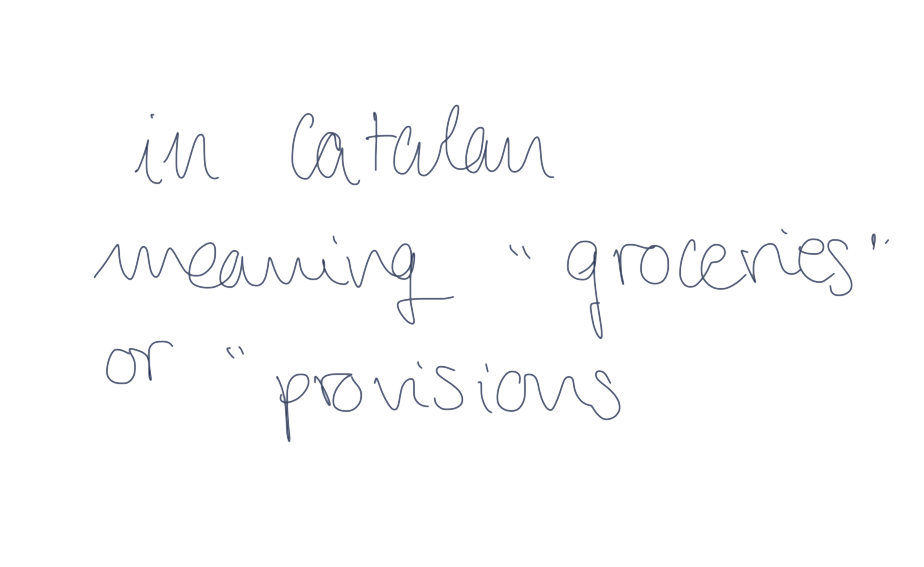 in Catalan
meaning "groceries"
or "provisions